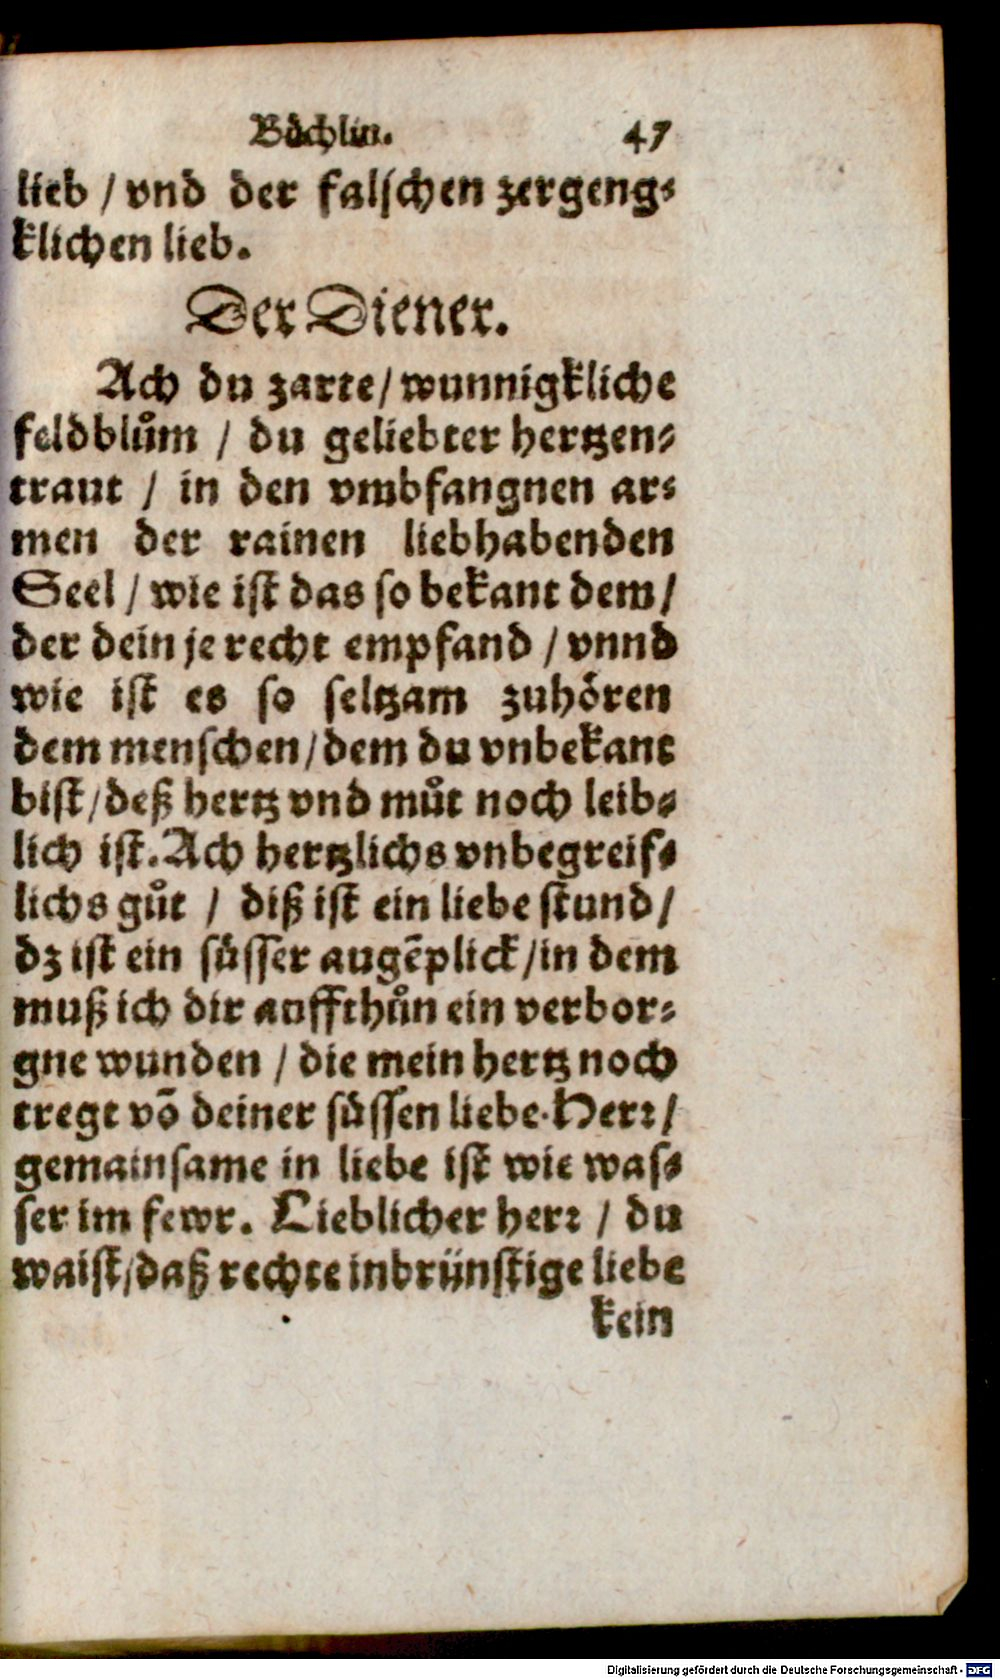 Büchlin. 47
lieb / vnd der falschen zergeng⸗
klichen lieb.
Der Diener.
Ach du zarte / wunnigkliche
feldblům / du geliebter hertzen⸗
traut / in den vmbfangnen ar⸗
men der rainen liebhabenden
Seel / wie ist das so bekant dem /
der dein je recht empfand / vnnd
wie ist es so seltzam zuhören
dem menschen / dem du vnbekant
bist / deß hertz vnd můt noch leib⸗
lich ist. Ach hertzlichs vnbegreif⸗
lichs gůt / diß ist ein liebe stund /
dz ist ein süsser augēplick / in dem
muß ich dir auffthůn ein verbor⸗
gne wunden / die mein hertz noch
tregt vō deiner süssen liebe. Herr /
gemainsame in liebe ist wie was⸗
ser im fewr. Lieblicher herr / du
waist / daß rechte inbrünstige liebe
kein
Digitalisierung gefördert durch die Deutsche Forschungsgemeinschaft - DFG